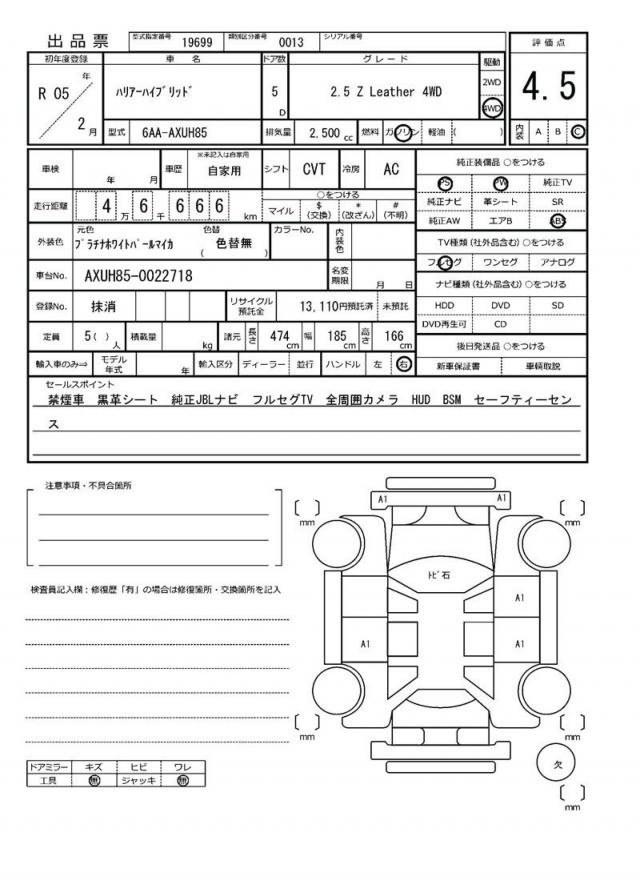 出品票 型式指定番号 19699 類別区分番号 0013 シリアル番号
評価点
4.5
内装 A B C
初年度登録 車名 ドア数 グレード 駆動
R 05 年 2 月
ハリアーハイブリッド 5 D 2.5 Z Leather 4WD 2WD 4WD
型式 6AA-AXUH85 排気量 2,500 cc 燃料 ガソリン 軽油 ( )
車検 年 月 車歴 ※未記入は自家用 自家用 シフト CVT 冷房 AC
走行距離 4万 6千 6 6 6 km
○をつける
マイル $(交換) *(改ざん) #(不明)
外装色 元色 プラチナホワイトパールマイカ 色替 ( 色替無 ) カラーNo. 内装色
車台No. AXUH85-0022718 名変期限 月 日
登録No. 抹消 リサイクル預託金 13,110円預託済 未預託
定員 5( )人 積載量 kg 諸元 長さ 474 cm 幅 185 cm 高さ 166 cm
輸入車のみ⇒ モデル年式 年 輸入区分 ディーラー 並行 ハンドル 左 右
純正装備品 ○をつける
PS PW 純正TV
純正ナビ 革シート SR
純正AW エアB ABS
TV種類(社外品含む)○をつける
フルセグ ワンセグ アナログ
ナビ種類(社外品含む)○をつける
HDD DVD SD
DVD再生可 CD
後日発送品 ○をつける
新車保証書 車輌取説
セールスポイント
禁煙車 黒革シート 純正JBLナビ フルセグTV 全周囲カメラ HUD BSM セーフティーセン
ス
注意事項・不具合箇所
検査員記入欄：修復歴「有」の場合は修復箇所・交換箇所を記入
ドアミラー キズ ヒビ ワレ
工具 無 ジャッキ 無
A1 A1
[ ] mm [ ] mm
トビ石
A1
A1 A1
[ ] mm [ ] mm
欠
[ ] mm